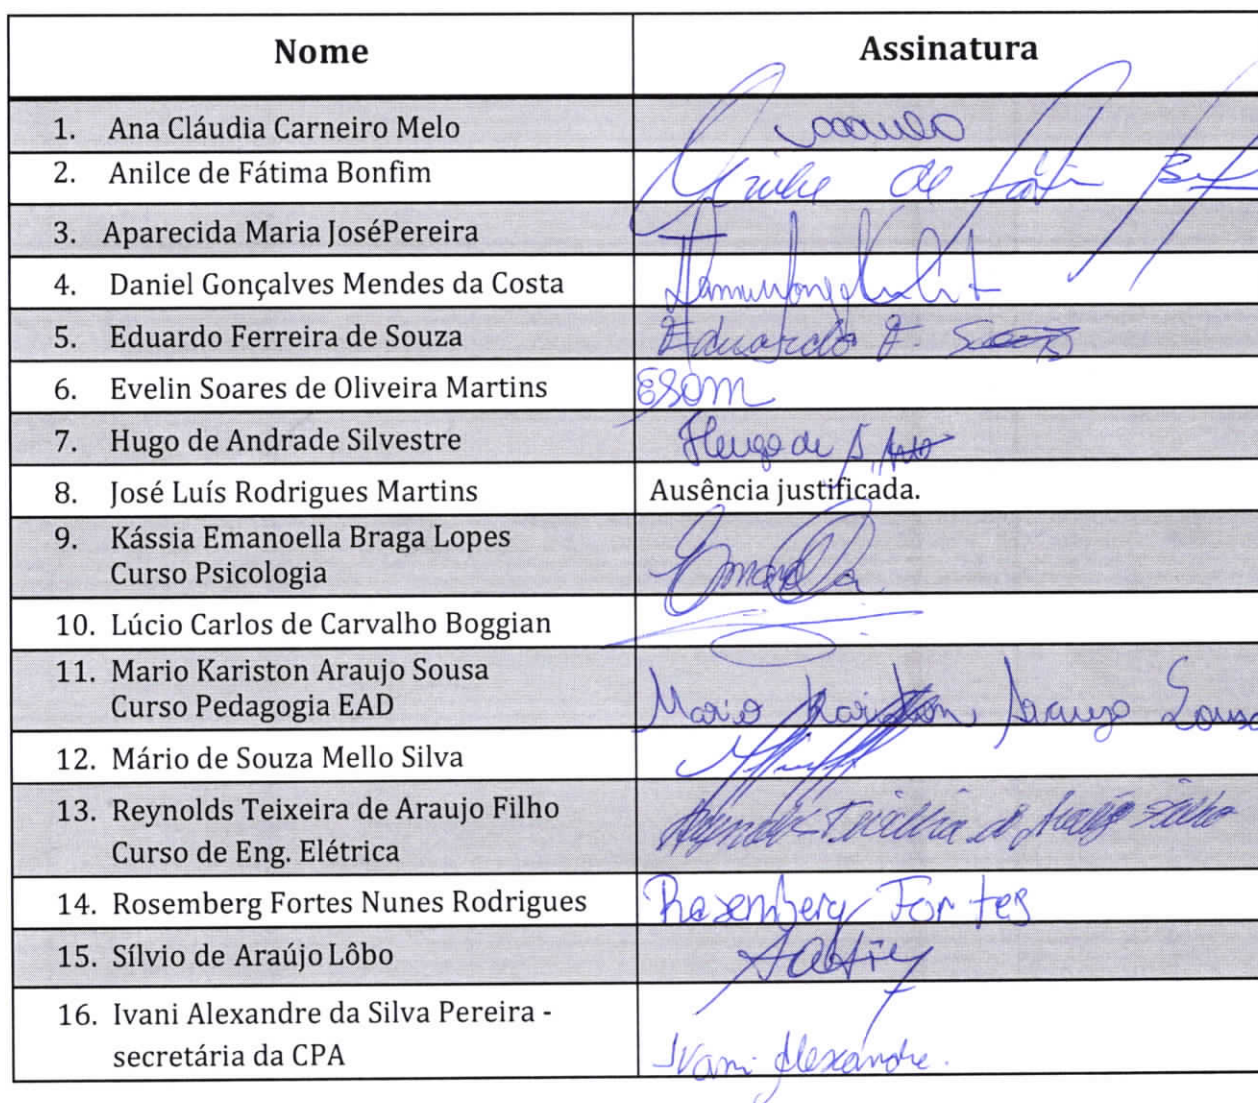 Nome Assinatura
1. Ana Cláudia Carneiro Melo
2. Anilce de Fátima Bonfim de
3. Aparecida Maria JoséPereira
4. Daniel Gonçalves Mendes da Costa
5. Eduardo Ferreira de Souza Eduardo F.
6. Evelin Soares de Oliveira Martins ESOM
7. Hugo de Andrade Silvestre Hugo de
8. José Luís Rodrigues Martins Ausência justificada.
9. Kássia Emanoella Braga Lopes
Curso Psicologia
10. Lúcio Carlos de Carvalho Boggian
11. Mario Kariston Araujo Sousa
Curso Pedagogia EAD Mario Kariston Araujo Sousa
12. Mário de Souza Mello Silva
13. Reynolds Teixeira de Araujo Filho
Curso de Eng. Elétrica Reynolds Teixeira de Araujo Filho
14. Rosemberg Fortes Nunes Rodrigues Rosemberg Fortes
15. Sílvio de Araújo Lôbo
16. Ivani Alexandre da Silva Pereira -
secretária da CPA Ivani Alexandre.